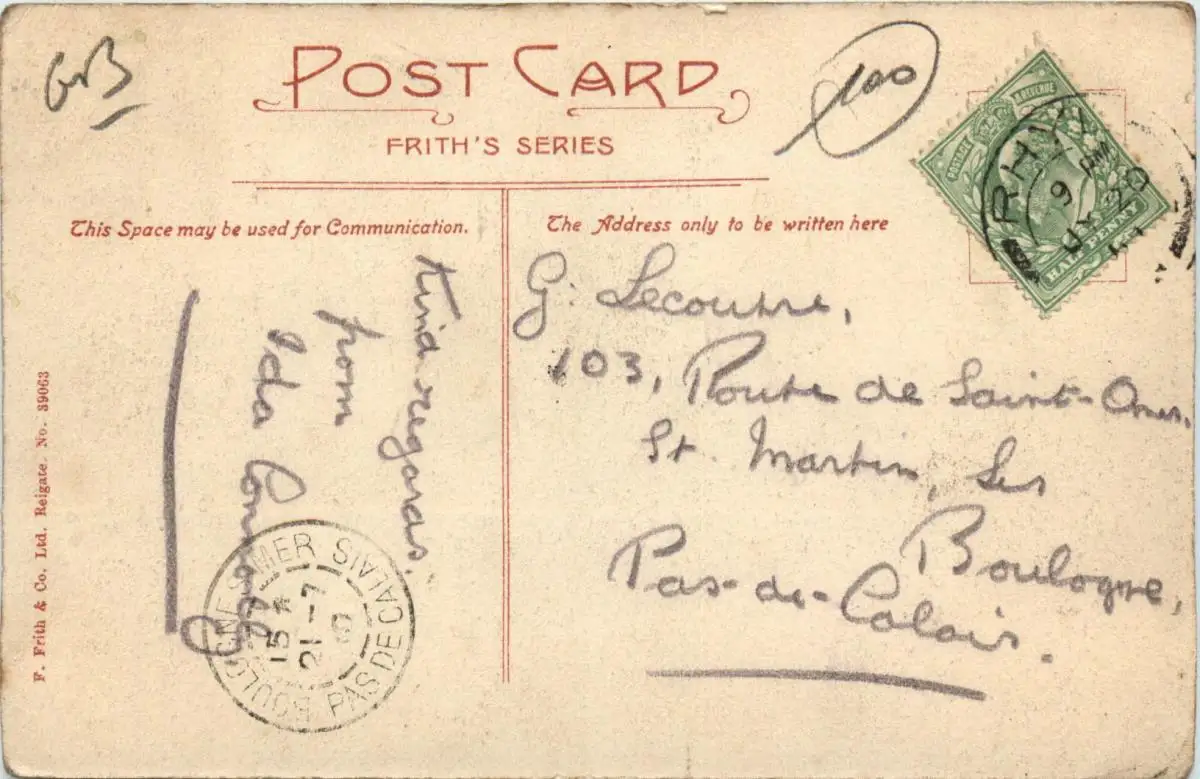 GB
POST CARD
100
FRITH'S SERIES
This Space may be used for Communication.
The Address only to be written here
POSTAGE & REVENUE
HALF PENNY
RHYL
Kind regards,
from
Ida
G. Lecoutre,
103, Route de Saint-Omer.
St. Martin, Les
Boulogne,
Pas-de-Calais.
BOULOGNE S MER PAS DE CALAIS
15
21-7
F. Frith & Co. Ltd. Reigate. No. 39063